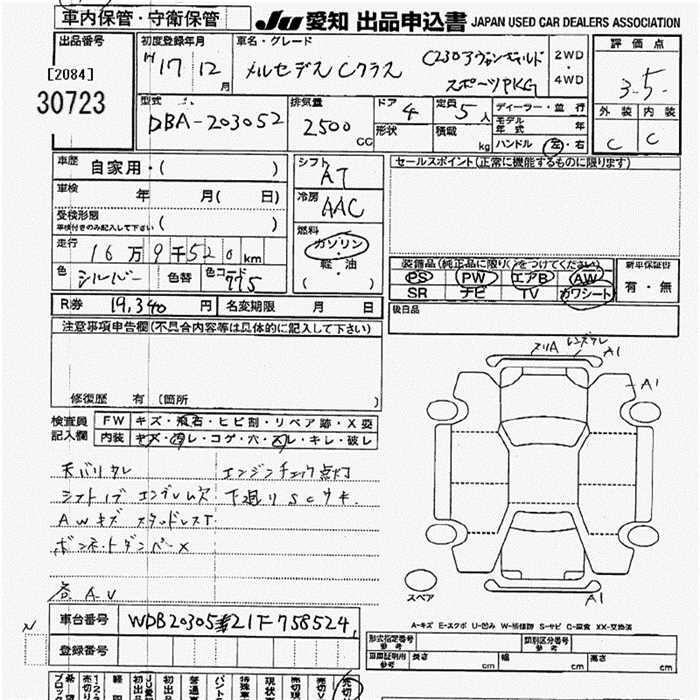 車内保管・守衛保管
JU 愛知 出品申込書 JAPAN USED CAR DEALERS ASSOCIATION
出品番号
[2084]
30723
初度登録年月
H17年12月
車名・グレード
メルセデスCクラス
C230アヴァンギャルド
スポーツPKG
2WD
・
4WD
評価点
3.5
外装 内装
C C
型式
DBA-203052
排気量
2500 CC
ドア 4
形状
定員 5人
積載 kg
ディーラー・並行
モデル年式 年
ハンドル 左・右
車歴 自家用・( )
車検 年 月( 日)
受検形態
車検付きのみ記入して下さい ( )
走行 16万9千520km
色 シルバー 色替 色コード 775
R券 19,340円 名変期限 月 日
シフト AT
冷房 AAC
燃料
ガソリン
・
軽・油
( )
セールスポイント(正常に機能するものに限る)
装備品(純正品に限り○をつけてください)
PS PW エアB AW
SR ナビ TV カワシート
新車保証書
有・無
後日品
注意事項申告欄(不具合内容等は具体的に記入して下さい)
修復歴 有 (箇所 )
検査員記入欄
FW キズ・飛石・ヒビ割・リペア跡・X要
内装 キズ・汚レ・コゲ・穴・スレ・キレ・破レ
天バリタレ エンジンチェック点灯
シフトノブ エンブレム欠 下廻りSCウキ
AWキズ スタッドレスT
ボンネットダンパーX
各AU
スリA A1
A1
A1
スペア
A-キズ E-エクボ U-凹み W-補修跡 S-サビ C-腐食 XX-交換済
車台番号 WDB2030521F758524
登録番号
形式指定番号 参考
類別区分番号 参考
車庫証明用 参考 長さ cm 幅 cm 高さ cm